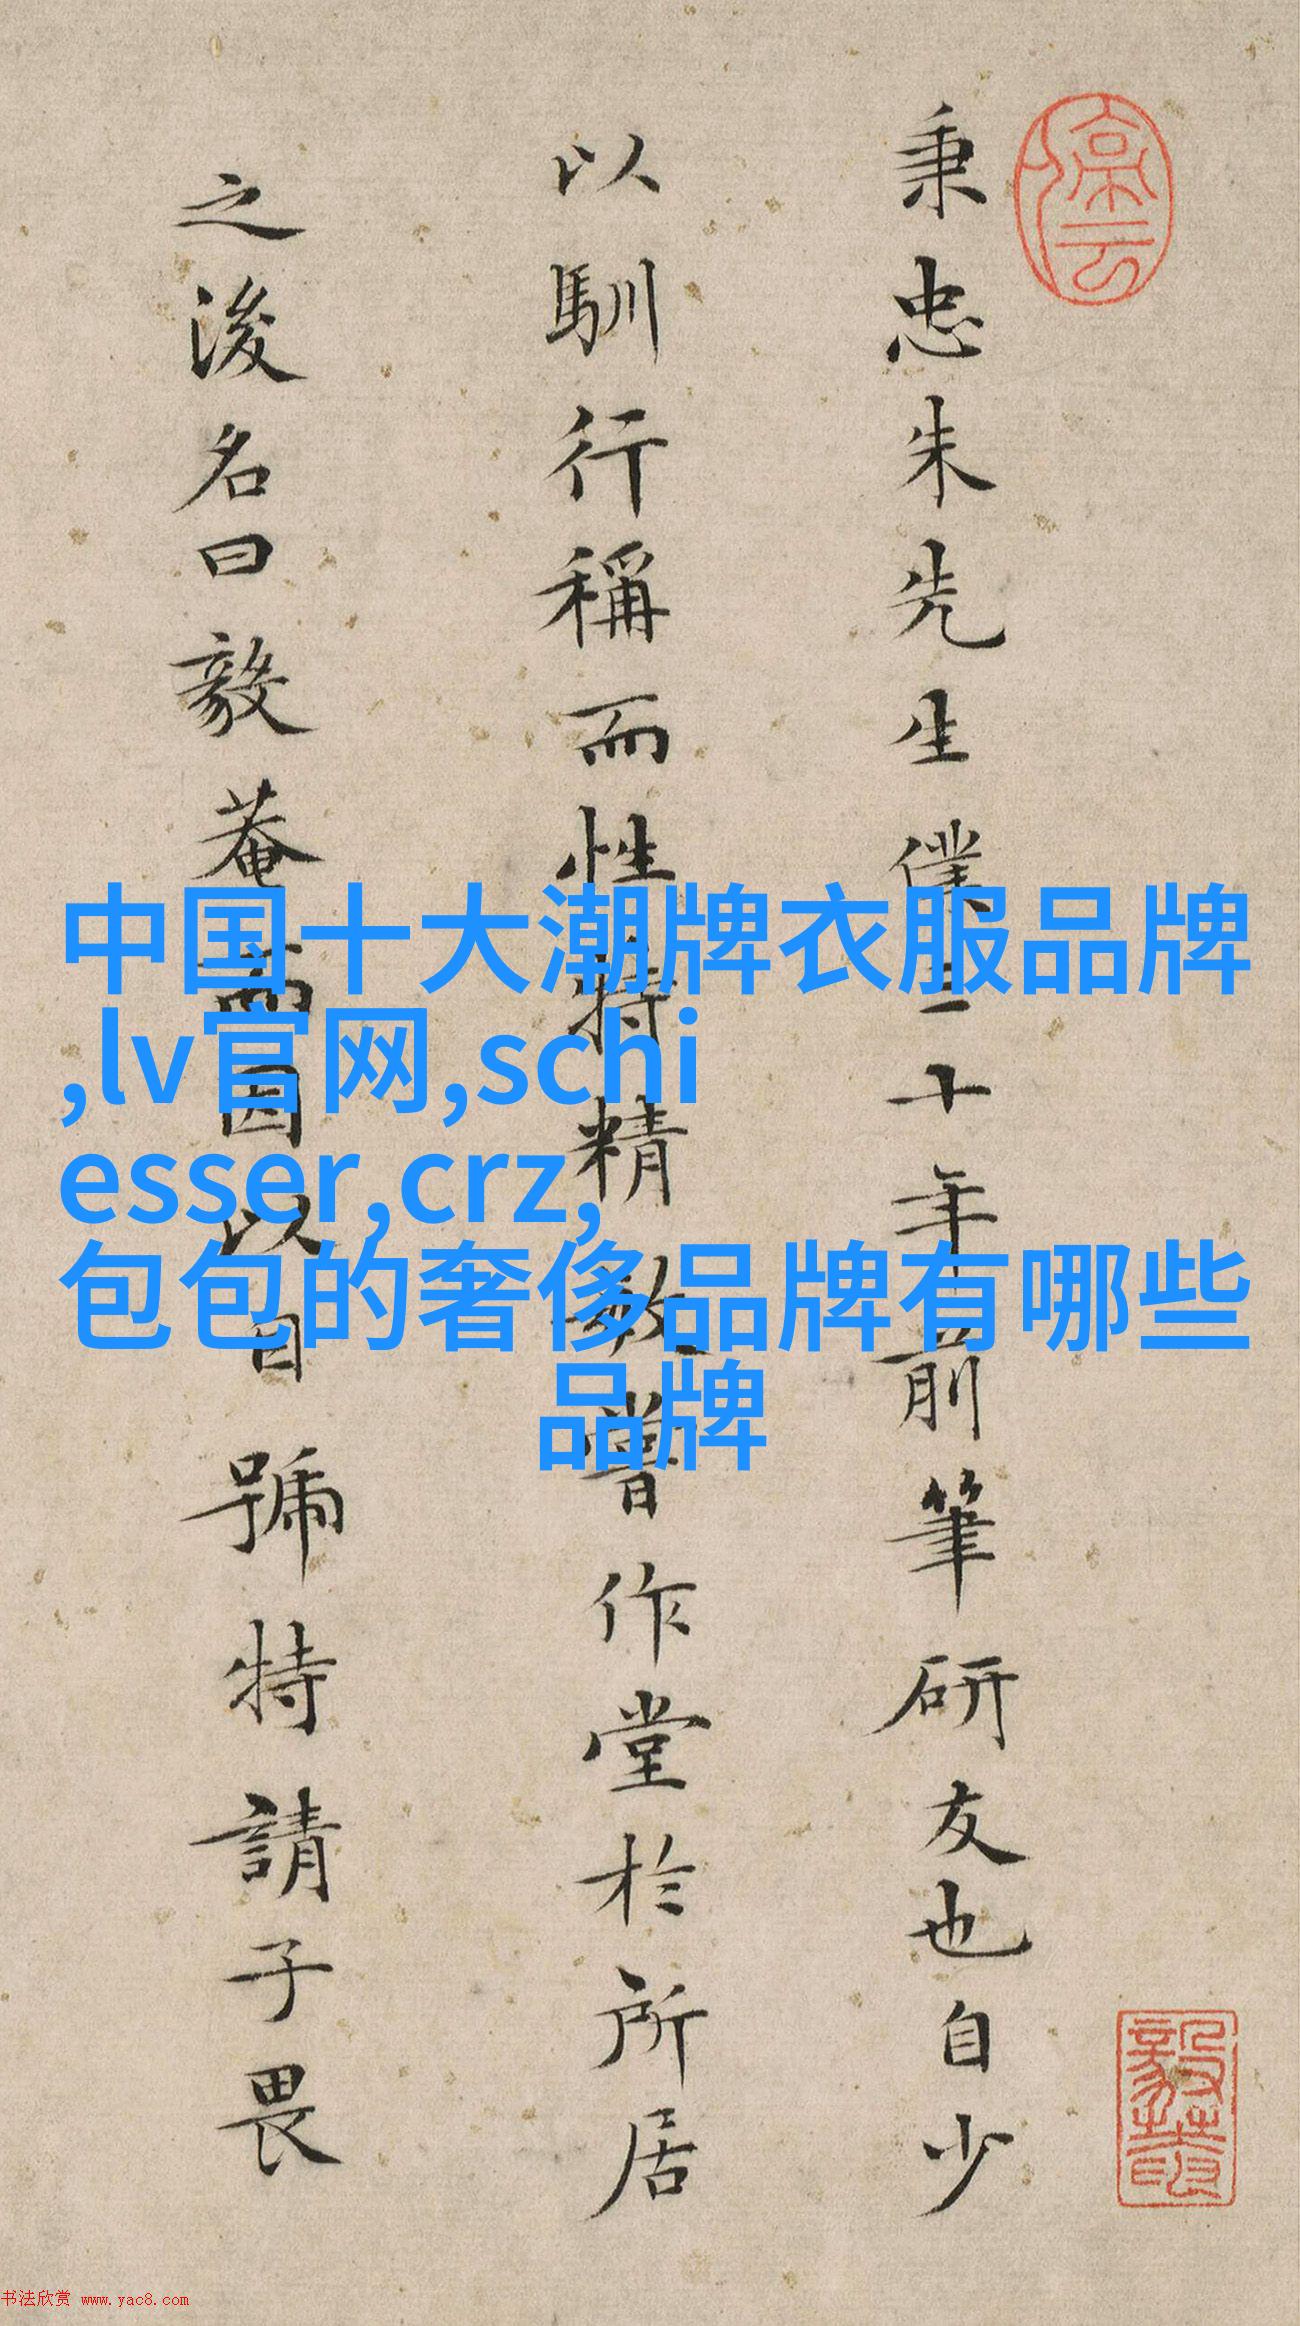 秉忠朱先生僕三十年前筆研友也自少
以馴行稱而性特精敏嘗作堂於所居
之後名曰毅菴而因以自號特請子畏
中国十大潮牌衣服品牌
,lv官网,schi
esser,crz,
包包的奢侈品牌有哪些
品牌
毅菴
书法欣赏 www.yac8.com